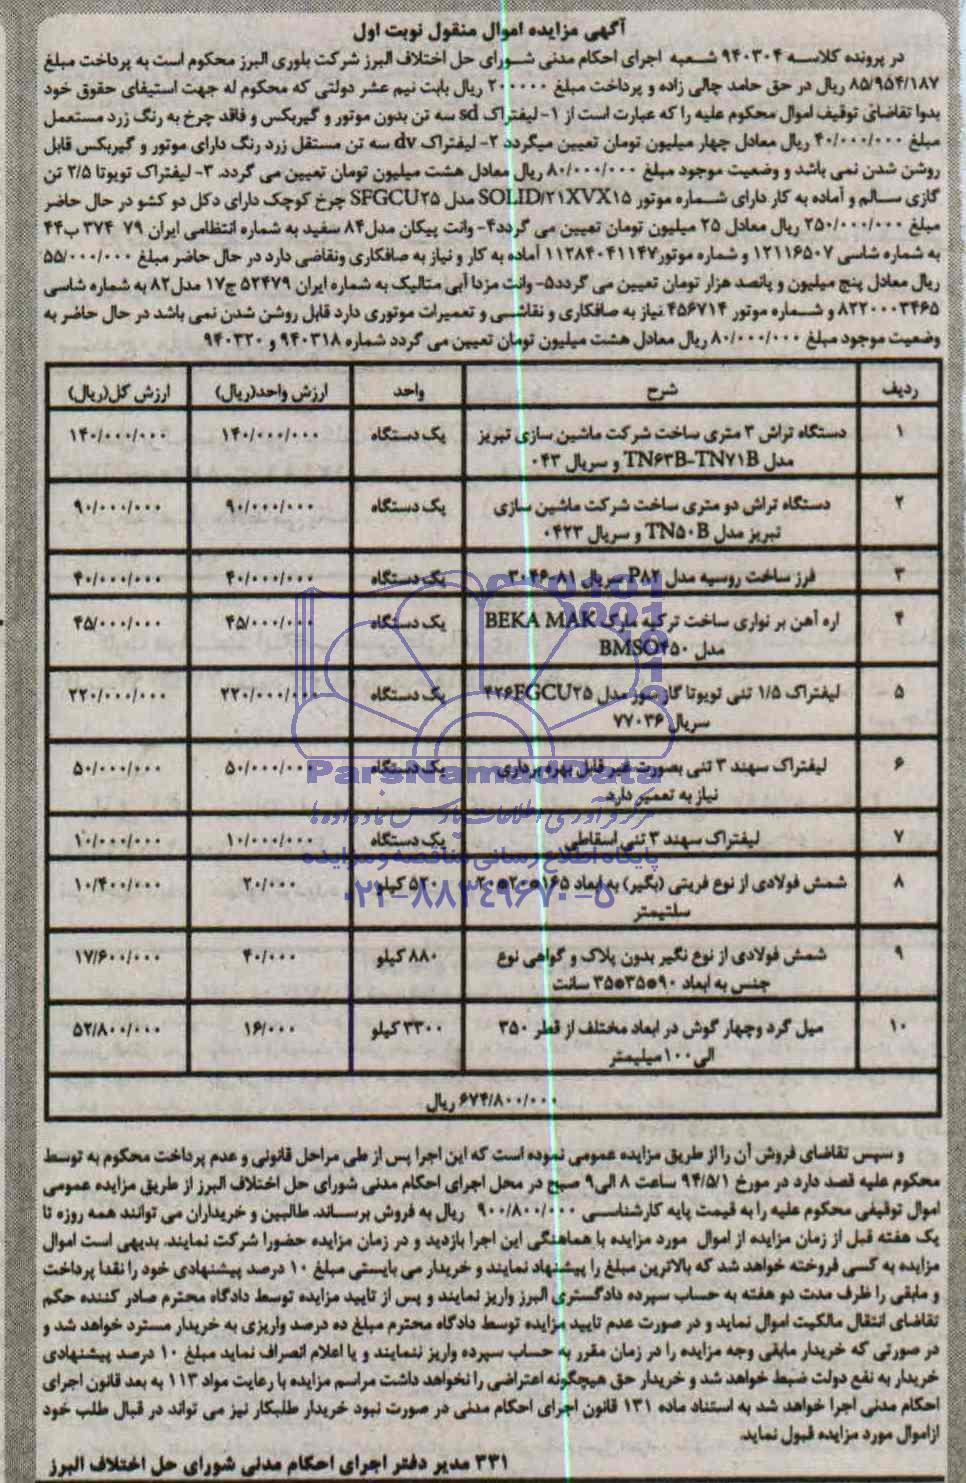 آگهی مزایده اموال منقول نوبت اول
در پرونده کلاسه ۹۴۰۳۰۴ شعبه اجرای احکام مدنی شورای حل اختلاف البرز شرکت بلوری البرز محکوم است به پرداخت مبلغ
۸۵/۹۵۴/۱۸۷ ریال در حق حامد چالی زاده و پرداخت مبلغ ۲۰۰۰۰۰ ریال بابت نیم عشر دولتی که محکوم له جهت استیفای حقوق خود
بدوا تقاضای توقیف اموال محکوم علیه را که عبارت است از ۱- لیفتراک sd سه تن بدون موتور و گیربکس و فاقد چرخ به رنگ زرد مستعمل
مبلغ ۴۰/۰۰۰/۰۰۰ ریال معادل چهار میلیون تومان تعیین میگردد ۲- لیفتراک dv سه تن مستقل زرد رنگ دارای موتور و گیربکس قابل
روشن شدن نمی باشد و وضعیت موجود مبلغ ۸۰/۰۰۰/۰۰۰ ریال معادل هشت میلیون تومان تعیین می گردد. ۳- لیفتراک تویوتا ۲/۵ تن
گازی سالم و آماده به کار دارای شماره موتور SOLID/۲۱XVX۱۵ مدل SFGCU۲۵ چرخ کوچک دارای دکل دو کشو در حال حاضر
مبلغ ۲۵۰/۰۰۰/۰۰۰ ریال معادل ۲۵ میلیون تومان تعیین می گردد۴- وانت پیکان مدل۸۴ سفید به شماره انتظامی ایران ۷۹ ۳۷۴ ب۴۴
به شماره شاسی ۱۲۱۱۶۵۰۷ و شماره موتور۱۱۲۸۴۰۴۱۱۴۷ آماده به کار و نیاز به صافکاری ونقاضی دارد در حال حاضر مبلغ ۵۵/۰۰۰/۰۰۰
ریال معادل پنج میلیون و پانصد هزار تومان تعیین می گردد۵- وانت مزدا آبی متالیک به شماره ایران ۵۲۴۷۹ ج۱۷ مدل۸۲ به شماره شاسی
۸۲۲۰۰۰۳۴۶۵ و شماره موتور ۴۵۶۷۱۴ نیاز به صافکاری و نقاشی و تعمیرات موتوری دارد قابل روشن شدن نمی باشد در حال حاضر به
وضعیت موجود مبلغ ۸۰/۰۰۰/۰۰۰ ریال معادل هشت میلیون تومان تعیین می گردد شماره ۹۴۰۳۱۸ و ۹۴۰۳۲۰
ردیف شرح واحد ارزش واحد(ریال) ارزش کل(ریال)
۱ دستگاه تراش ۳ متری ساخت شرکت ماشین سازی تبریز یک دستگاه ۱۴۰/۰۰۰/۰۰۰ ۱۴۰/۰۰۰/۰۰۰
مدل TN۶۳B-TN۷۱B و سریال ۰۴۳
۲ دستگاه تراش دو متری ساخت شرکت ماشین سازی یک دستگاه ۹۰/۰۰۰/۰۰۰ ۹۰/۰۰۰/۰۰۰
تبریز مدل TN۵۰B و سریال ۰۴۲۳
۳ فرز ساخت روسیه مدل P۸۲ سریال ۸۱-۳۰۴۶ یک دستگاه ۴۰/۰۰۰/۰۰۰ ۴۰/۰۰۰/۰۰۰
۴ اره آهن بر نواری ساخت ترکیه مارک BEKA MAK یک دستگاه ۴۵/۰۰۰/۰۰۰ ۴۵/۰۰۰/۰۰۰
مدل BMSO۴۵۰
۵ لیفتراک ۱/۵ تنی تویوتا گاز سوز مدل ۴۲۶FGCU۲۵ یک دستگاه ۲۲۰/۰۰۰/۰۰۰ ۲۲۰/۰۰۰/۰۰۰
سریال ۷۷۰۳۶
۶ لیفتراک سهند ۳ تنی بصورت غیر قابل بهره برداری یک دستگاه ۵۰/۰۰۰/۰۰۰ ۵۰/۰۰۰/۰۰۰
نیاز به تعمیر دارد
۷ لیفتراک سهند ۳ تنی اسقاطی یک دستگاه ۱۰/۰۰۰/۰۰۰ ۱۰/۰۰۰/۰۰۰
۸ شمش فولادی از نوع فریتی (بگیر) به ابعاد ۱۶۵*۲۰*۲۰ ۵۲۰ کیلو ۲۰/۰۰۰ ۱۰/۴۰۰/۰۰۰
سلتیمتر
۹ شمش فولادی از نوع نگیر بدون پلاک و گواهی نوع ۸۸۰ کیلو ۴۰/۰۰۰ ۱۷/۶۰۰/۰۰۰
جنس به ابعاد ۹۰*۳۵*۳۵ سانت
۱۰ میل گرد وچهار گوش در ابعاد مختلف از قطر ۳۵۰ ۳۳۰۰ کیلو ۱۶/۰۰۰ ۵۲/۸۰۰/۰۰۰
الی۱۰۰میلیمتر
۶۷۴/۸۰۰/۰۰۰ ریال
ParsNamadData
مرکز فرآوری اطلاعات پارس نماد داده ها
پایگاه اطلاع رسانی مناقصه و مزایده
۰۲۱-۸۸۳۴۹۶۷۰-۵
و سپس تقاضای فروش آن را از طریق مزایده عمومی نموده است که این اجرا پس از طی مراحل قانونی و عدم پرداخت محکوم به توسط
محکوم علیه قصد دارد در مورخ ۹۴/۵/۱ ساعت ۸ الی۹ صبح در محل اجرای احکام مدنی شورای حل اختلاف البرز از طریق مزایده عمومی
اموال توقیفی محکوم علیه را به قیمت پایه کارشناسی ۹۰۰/۸۰۰/۰۰۰ ریال به فروش برساند. طالبین و خریداران می توانند همه روزه تا
یک هفته قبل از زمان مزایده از اموال مورد مزایده با هماهنگی این اجرا بازدید و در زمان مزایده حضورا شرکت نمایند. بدیهی است اموال
مزایده به کسی فروخته خواهد شد که بالاترین مبلغ را پیشنهاد نمایند و خریدار می بایستی مبلغ ۱۰ درصد پیشنهادی خود را نقدا پرداخت
و مابقی را ظرف مدت دو هفته به حساب سپرده دادگستری البرز واریز نمایند و پس از تایید مزایده توسط دادگاه محترم صادر کننده حکم
تقاضای انتقال مالکیت اموال نماید و در صورت عدم تایید مزایده توسط دادگاه محترم مبلغ ده درصد واریزی به خریدار مسترد خواهد شد و
در صورتی که خریدار مابقی وجه مزایده را در زمان مقرر به حساب سپرده واریز ننمایند و یا اعلام انصراف نماید مبلغ ۱۰ درصد پیشنهادی
خریدار به نفع دولت ضبط خواهد شد و خریدار حق هیچگونه اعتراضی را نخواهد داشت مراسم مزایده با رعایت مواد ۱۱۳ به بعد قانون اجرای
احکام مدنی اجرا خواهد شد به استناد ماده ۱۳۱ قانون اجرای احکام مدنی در صورت نبود خریدار طلبکار نیز می تواند در قبال طلب خود
ازاموال مورد مزایده قبول نماید.
۳۳۱ مدیر دفتر اجرای احکام مدنی شورای حل اختلاف البرز